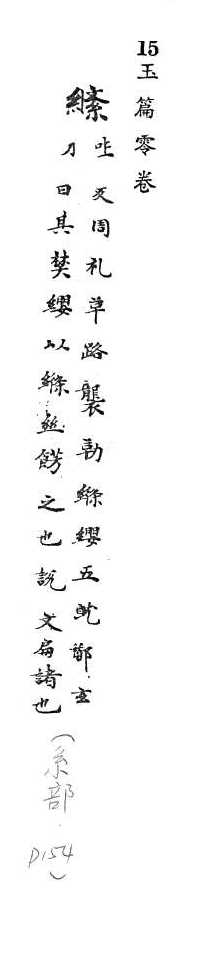 15 玉篇零卷
吐反周礼革路龒勒絛纓五就鄭玄
刀曰其樊纓以絛絲餝之也說文扁諸也
(糸部.
P154)